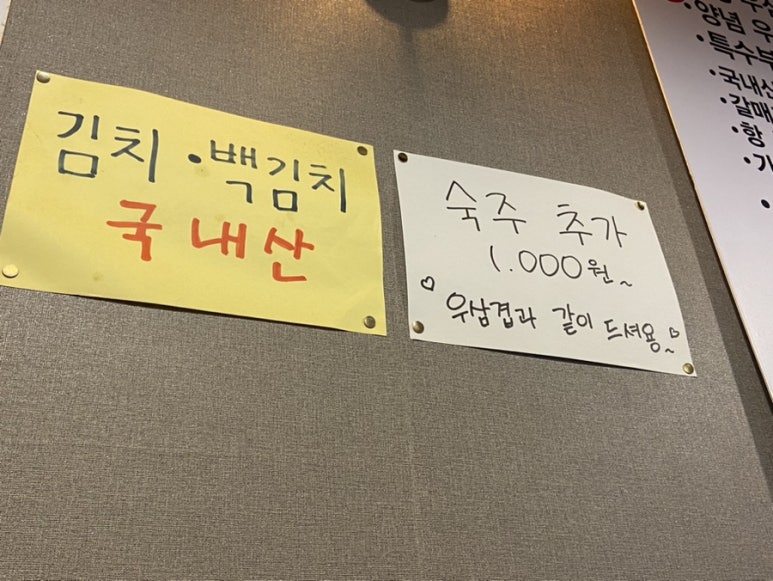 김치·백김치
국내산
숙주 추가
1.000원~
♡우삼겹과 같이 드셔용~♡
·양념 우
·특수부
·국내산
·갈매
·항
·기